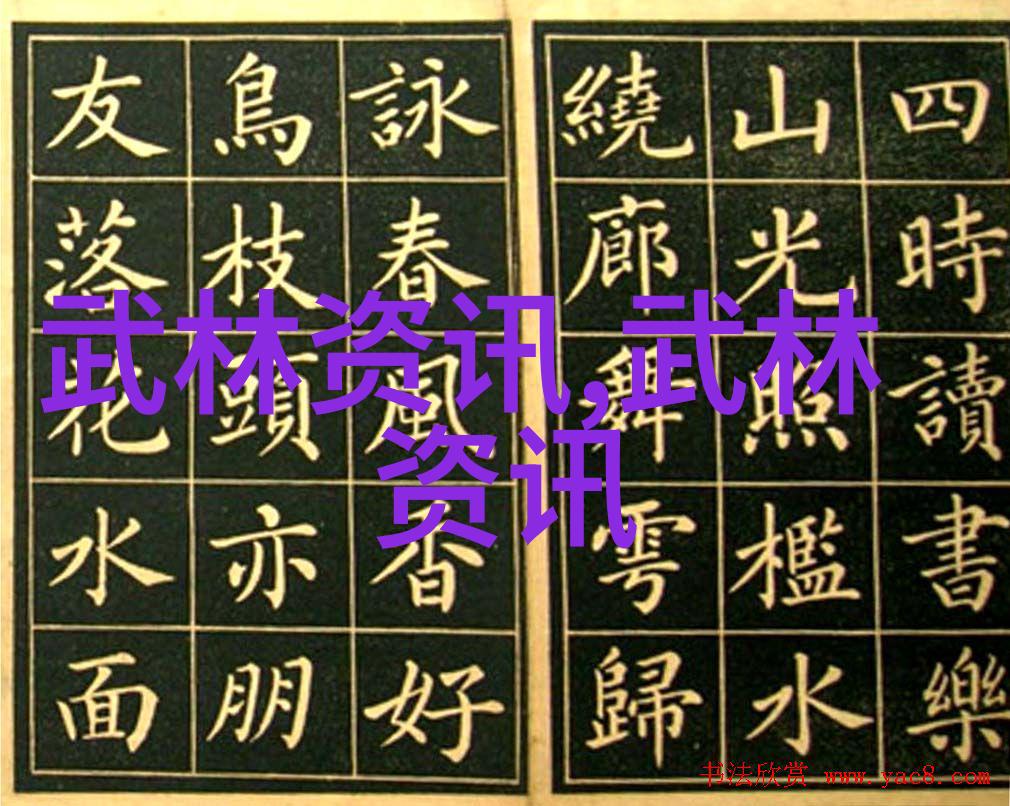 四時讀書樂
山光照檻水
繞廊舞雩歸
詠春風香好
鳥枝頭亦朋
友落花水面
武林资讯,武林
资讯
书法欣赏 www.yac8.com